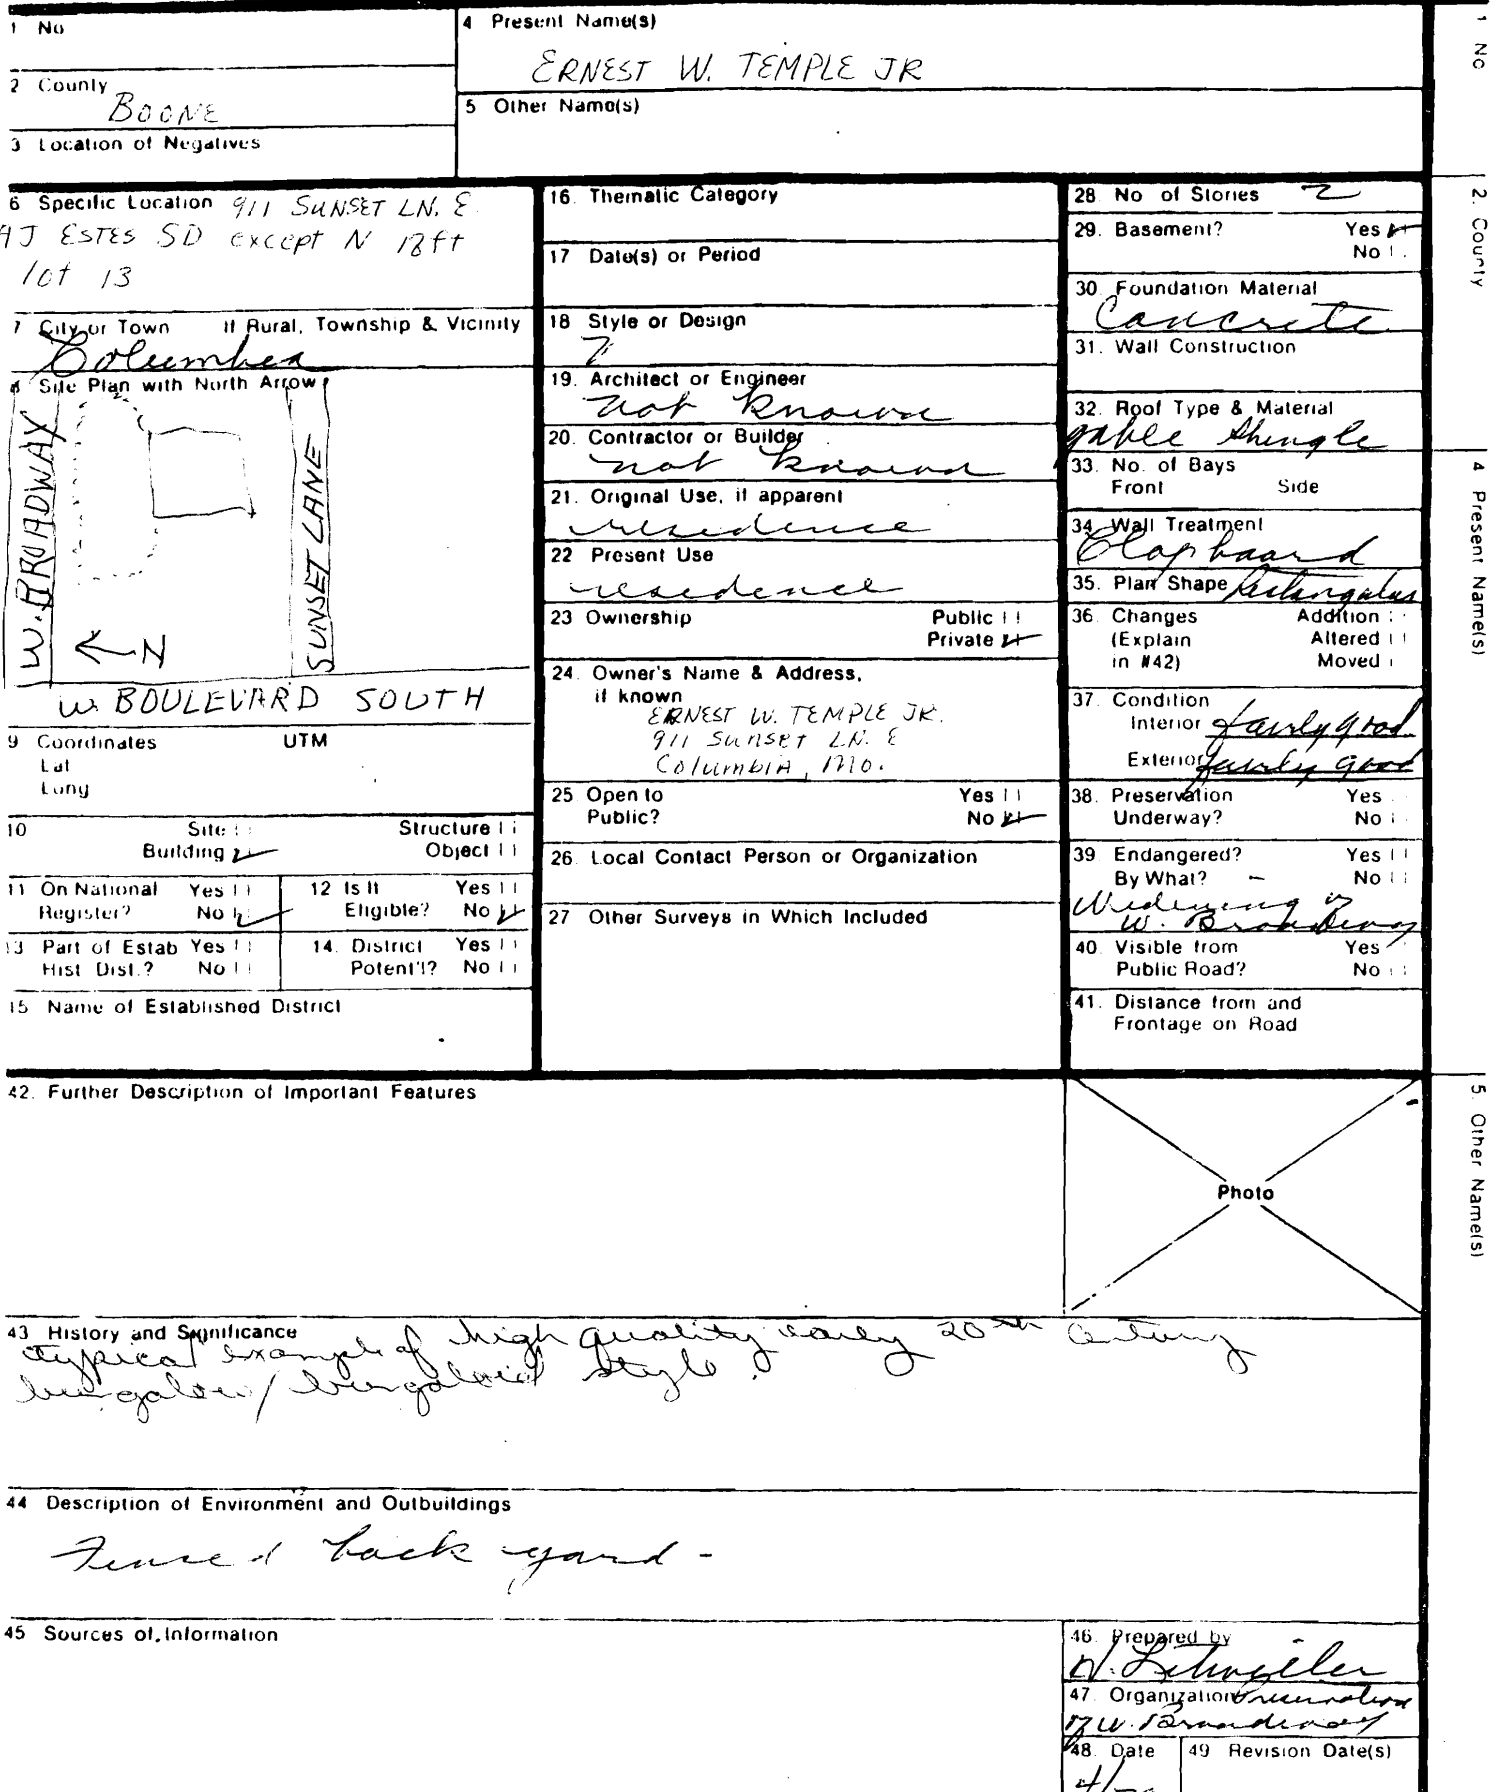 1 No
4 Present Name(s)
ERNEST W. TEMPLE JR
2 County
BOONE
5 Other Name(s)
3 Location of Negatives
6 Specific Location 911 SUNSET LN. E.
AJ ESTES SD except N 18ft
lot 13
7 City or Town If Rural, Township & Vicinity
Columbia
8 Site Plan with North Arrow
W. BROADWAY
SUNSET LANE
N
W. BOULEVARD SOUTH
9 Coordinates UTM
Lat
Long
10 Site Structure
Building Object
11 On National Register? Yes No
12 Is It Eligible? Yes No
13 Part of Estab Hist Dist.? Yes No
14. District Potent'l? Yes No
15 Name of Established District
16. Thematic Category
17 Date(s) or Period
18 Style or Design
?
19. Architect or Engineer
not known
20. Contractor or Builder
not known
21. Original Use, if apparent
residence
22 Present Use
residence
23 Ownership Public
Private
24. Owner's Name & Address,
if known
ERNEST W. TEMPLE JR.
911 SUNSET LN. E
Columbia, Mo.
25 Open to Yes
Public? No
26. Local Contact Person or Organization
27 Other Surveys in Which Included
28. No of Stories 2
29. Basement? Yes
No
30 Foundation Material
Concrete
31. Wall Construction
32. Roof Type & Material
gable shingle
33. No. of Bays
Front Side
34. Wall Treatment
Clapboard
35. Plan Shape Rectangular
36. Changes Addition
(Explain Altered
in #42) Moved
37. Condition
Interior fairly good
Exterior fairly good
38. Preservation Yes
Underway? No
39 Endangered? Yes
By What? – No
Widening of
W. Broadway
40. Visible from Yes
Public Road? No
41. Distance from and
Frontage on Road
42. Further Description of Important Features
Photo
43 History and Significance
typical example of high quality early 20th Century
bungalow/bungaloid style.
44 Description of Environment and Outbuildings
Fenced back yard -
45 Sources of Information
46. Prepared by
N. Litweiler
47. Organization Preservation
of W. Broadway
48. Date
49 Revision Date(s)
1 No
2. County
4 Present Name(s)
5. Other Name(s)